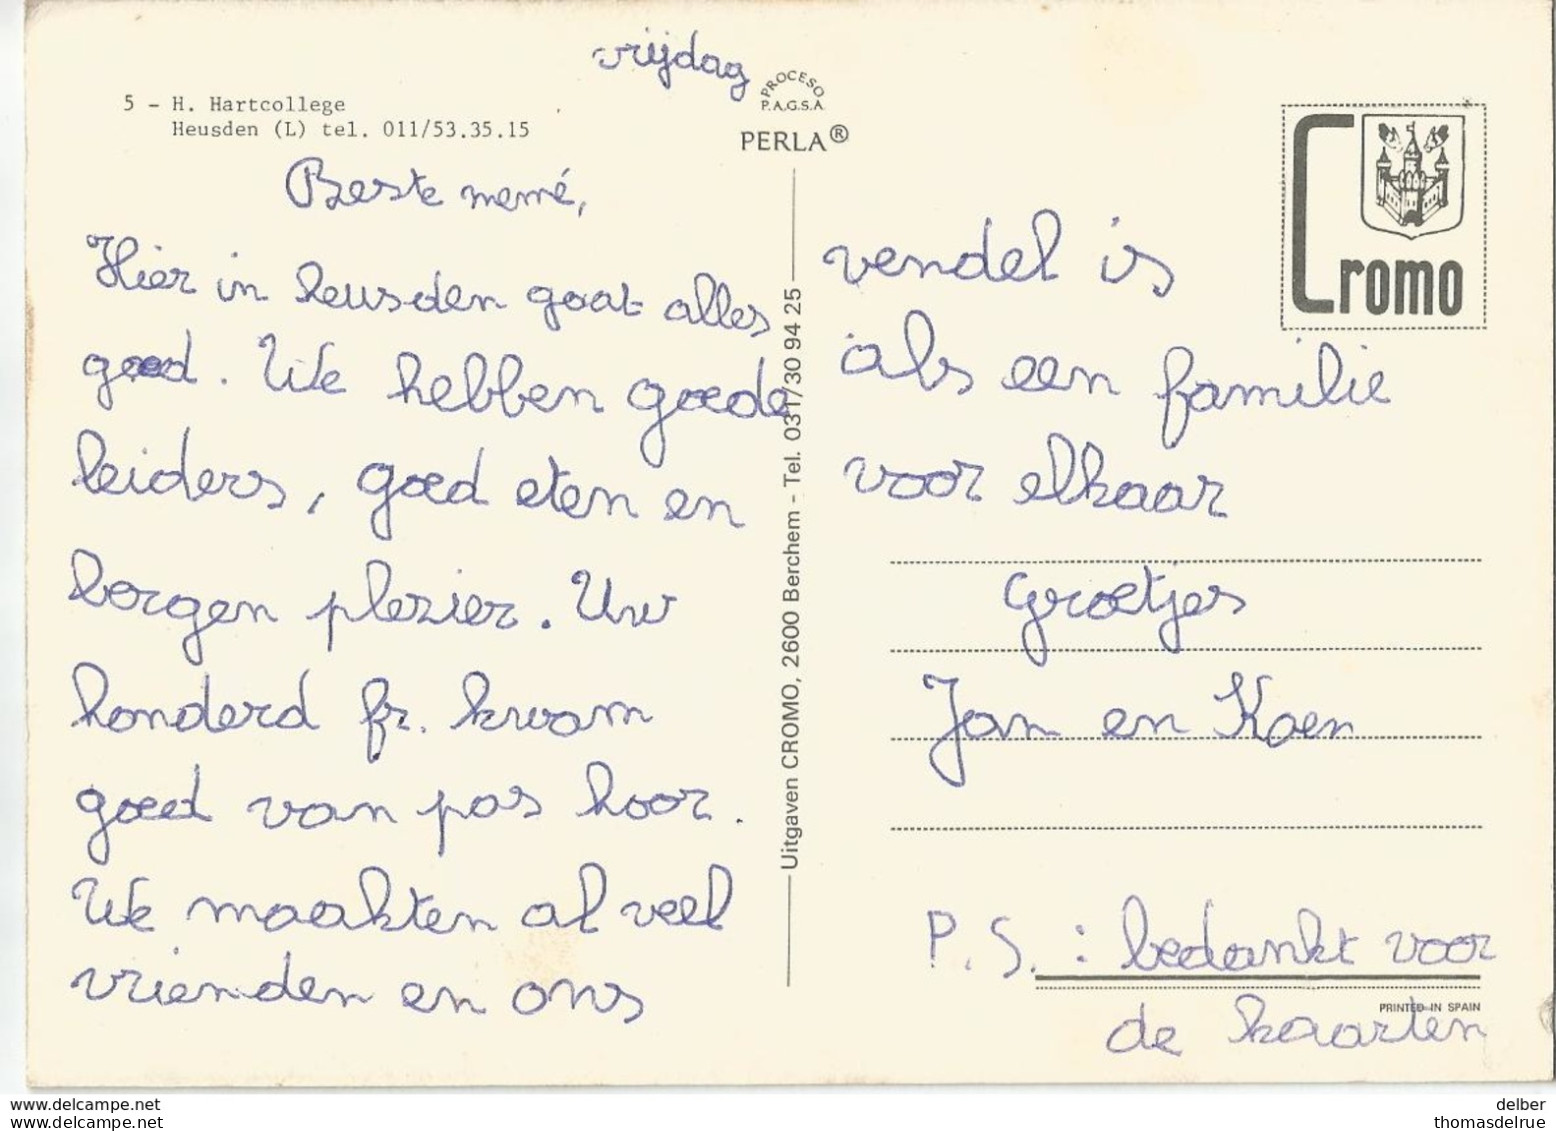 vrijdag
PROCESO
P.A.G.S.A.
PERLA®
5 - H. Hartcollege
Heusden (L) tel. 011/53.35.15
Beste memé,
Hier in heusden gaat alles
goed. We hebben goede
leiders, goed eten en
borgen plezier. Uw
honderd fr. kwam
goed van pas hoor.
We maakten al veel
vrienden en ons
vendel is
als een familie
voor elkaar
Groetjes
Jan en Koen
P.S. : bedankt voor
de kaarten
Uitgaven CROMO, 2600 Berchem - Tel. 031/30 94 25
Cromo
PRINTED IN SPAIN
www.delcampe.net
www.delcampe.net
delber
thomasdelrue